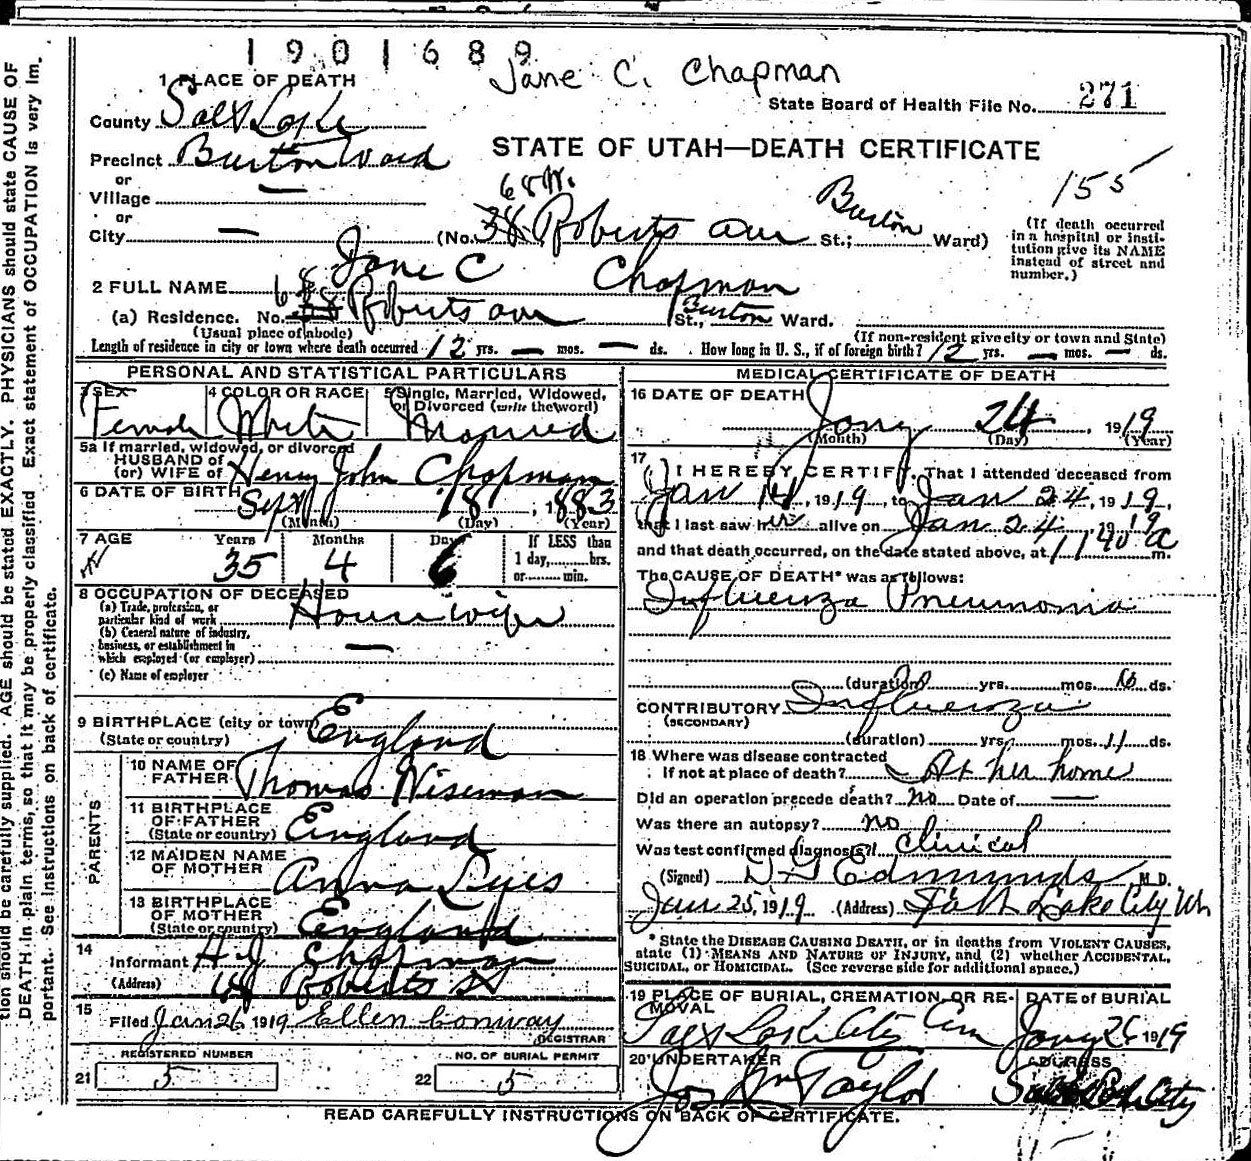 1901689
Jane C. Chapman
1 PLACE OF DEATH
State Board of Health File No. 271
County Salt Lake
STATE OF UTAH—DEATH CERTIFICATE
Precinct Burton Ward
or
Village —
155
or
City — (No. 38 68 W. Roberts ave St.; Burton Ward)
(If death occurred in a hospital or institution give its NAME instead of street and number.)
2 FULL NAME Jane C Chapman
(a) Residence. No. 68 Roberts ave St., Burton Ward.
(Usual place of abode) (If non-resident give city or town and State)
Length of residence in city or town where death occurred 12 yrs. — mos. — ds. How long in U. S., if of foreign birth? 12 yrs. — mos. — ds.
PERSONAL AND STATISTICAL PARTICULARS
3 SEX 4 COLOR OR RACE 5 Single, Married, Widowed, or Divorced (write the word)
Female White Married
5a If married, widowed, or divorced
HUSBAND of
(or) WIFE of Henry John Chapman
6 DATE OF BIRTH Sept 18, 1883
(Month) (Day) (Year)
7 AGE Years Months Days If LESS than
35 4 6 1 day, hrs.
or min.
8 OCCUPATION OF DECEASED
(a) Trade, profession, or
particular kind of work Housewife
(b) General nature of industry,
business, or establishment in
which employed (or employer) —
(c) Name of employer
9 BIRTHPLACE (city or town)
(State or country) England
PARENTS
10 NAME OF
FATHER Thomas Wiseman
11 BIRTHPLACE
OF FATHER
(State or country) England
12 MAIDEN NAME
OF MOTHER Anna
13 BIRTHPLACE
OF MOTHER
(State or country) England
14
Informant H. J. Chapman
(Address) 68 Roberts St
15
Filed Jan 26 1919 Ellen Conway
REGISTRAR
REGISTERED NUMBER NO. OF BURIAL PERMIT
21 5 22 5
MEDICAL CERTIFICATE OF DEATH
16 DATE OF DEATH
Jany 24, 1919
(Month) (Day) (Year)
17
I HEREBY CERTIFY, That I attended deceased from
Jan 14, 1919, to Jan 24, 1919,
that I last saw her alive on Jan 24, 1919
and that death occurred, on the date stated above, at 11 40 a m.
The CAUSE OF DEATH* was as follows:
Influenza Pneumonia
(duration) yrs. mos. 10 ds.
CONTRIBUTORY Influenza
(SECONDARY)
(duration) yrs. mos. 11 ds.
18 Where was disease contracted
If not at place of death? At her home
Did an operation precede death? no Date of —
Was there an autopsy? no
Was test confirmed diagnosis? Clinical
(Signed) Edmunds M.D.
Jan 25, 1919 (Address) Salt Lake City Ut
*State the DISEASE CAUSING DEATH, or in deaths from VIOLENT CAUSES,
state (1) MEANS AND NATURE OF INJURY, and (2) whether ACCIDENTAL,
SUICIDAL, OR HOMICIDAL. (See reverse side for additional space.)
19 PLACE OF BURIAL, CREMATION, OR RE- DATE of BURIAL
MOVAL
Salt Lake City Cem Jany 26 1919
20 UNDERTAKER ADDRESS
Jos Wm Taylor Salt Lake City
READ CAREFULLY INSTRUCTIONS ON BACK OF CERTIFICATE.
tion should be carefully supplied. AGE should be stated EXACTLY. PHYSICIANS should state CAUSE OF
DEATH in plain terms, so that it may be properly classified. Exact statement of OCCUPATION is very im-
portant. See instructions on back of certificate.